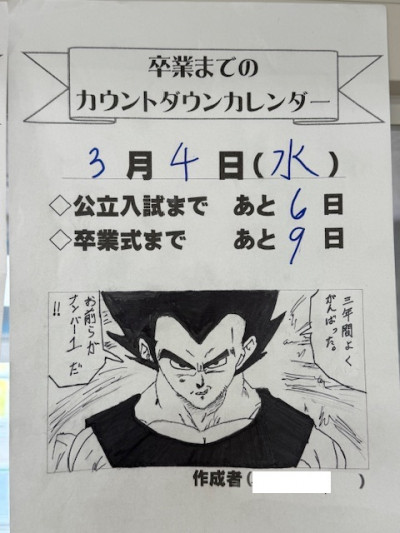 卒業までの
カウントダウンカレンダー
3月4日(水)
◇公立入試まで あと6日
◇卒業式まで あと9日
三年間よく
がんばった。
お前らが
ナンバー1だ
!!
作成者( )